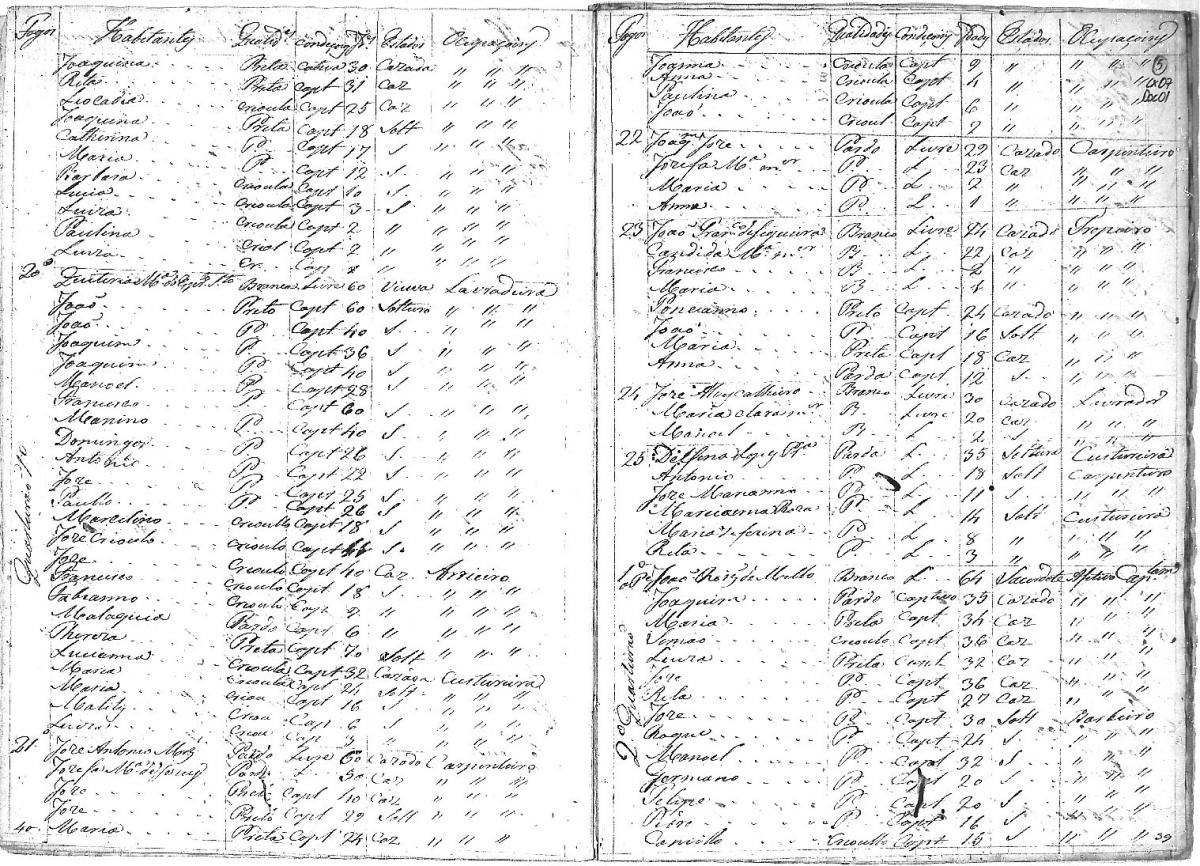 Fogos Habitantes Qualides Condiçoins Ides Estados Ocupaçoins
Joaquina Preta Cativa 30 Cazada " " "
Rita Preta Capt 31 Caz " " "
Liocadia Crioula Capt 25 Caz " " "
Joaquina Preta Capt 18 Solt " " "
Catherina P. Capt 17 S " " "
Maria P. Capt 12 S. " " "
Barbara Crioula Capt 10 S. " " "
Luzia Crioula Capt 3 S " " "
Luiza Crioula Capt 2 " " " "
Paulina Criol Capt 2 " " " "
Luiza Cr. Cap 1 " " " "
20 Branca Livre 60 Viuva Lavradura
João Preto Capt 60 Solteiro " " "
João P. Capt 40 S " " "
Joaquim P. Capt 36 S " " "
Joaquim P. Capt 40 S " " "
Manoel P. Capt 28 S " " "
Francisco P. Capt 60 S " " "
Manino P. Capt 40 S " " "
Domingos P. Capt 26 S. " " "
Antonio P. Capt 22 S. " " "
Jose P. Capt 25 S. " " "
Paullo P. Capt 26 S. " " "
Marcelino Crioulo Capt 18 S. " " "
Jose Crioulo Crioulo Capt S. " " "
Jose Crioulo Capt 40 Caz Arrieiro
Francisco Crioulo Capt 18 S. " " "
Fabianno Crioulo Capt 9 " " " "
Malaquia Pardo Cap 6 " " " "
Thereza Preta Capt 70 Solt " " "
Lucianna Crioula Capt 32 Cazada Custureira
Maria Crioula Capt 24 Solt " " "
Maria Criou Capt 16 S " " "
Matildes Criou Cap 6 S " " "
Luiza Criou Cap 3 " " " "
21 Jose Antonio Pardo Livre 60 Cazado Carpinteiro
Josefa Ma de Pard L 50 Caz " " "
Jose Preto Capt 40 Caz " " "
Jose Preto Capt 29 Solt " " "
40 Maria Preta Capt 24 Caz " " "
Fogos Habitantes Qualidades Condiçoins Idades Estados Ocupaçoins
5
Joanna Crioula Capt 9 " " " "
Anna Crioula Capt 4 " " " "
Paulina Crioula Capt 6 " " " "
João Crioul Capt 2 " " " "
22 Joaqm Jose Pardo Livre 29 Cazado Carpinteiro
Josefa Ma mer P. L. 23 Caz " " "
Maria P. L. 2 " " " "
Anna P. L. 1 " " " "
23 João Franco de Siqueira Branco Livre 24 Cazado Tropeiro
Candida Ma mer B. L. 22 Caz " " "
Francisco B. L. 2 " " " "
Maria B. L. 1 " " " "
Poncianno Preto Capt 24 Cazado " " "
João P. Capt 16 Solt " " "
Maria Preta Capt 18 Caz " " "
Anna Parda Capt 12 S. " " "
24 Jose Branco Livre 30 Cazado Livrador
Maria Clara mer B. Livre 20 Caz " " "
Manoel B. L. 2 S " " "
25 Delfina Lopes Parda L. 35 Solteira Custureira
Antonio P. L. 18 Solt Carpinteiro
Jose Marianno P. L. 11 S " " "
Marianna Roza P. L. 14 Solt Custureira
Maria Jeserina P. L. 8 " " " "
Rita P. L. 3 " " " "
1º João Roiz de Mello Branco L. 64 Sacerdote
Joaquim Pardo Captivo 35 Cazado " " "
Maria Preta Capt 34 Caz " " "
Simão Crioulo Capt 36 Caz " " "
Luiza Preta Capt 32 Caz " " "
Jose P. Capt 36 Caz " " "
Rita P. Capt 27 Caz " "
Jose P. Capt 30 Solt Barbeiro
Roque P. Capt 24 S. " " "
Manoel P. Capt 32 S " " "
Germano P. Capt 20 S " " "
Felipe P. Capt 20 S. " " "
P. Capt 16 S " " "
Camillo Crioullo Capt 15 S " " " 39